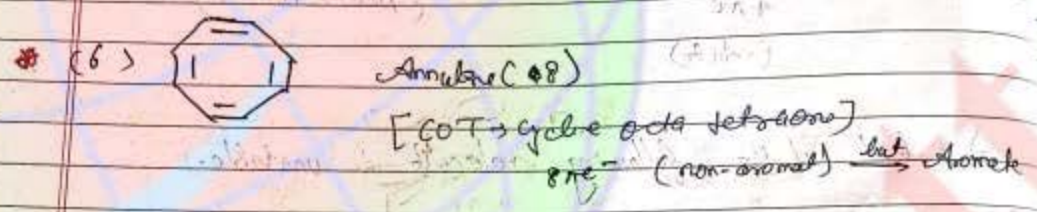 (6) Annulene (8)
[COT → cyclo octa tetraene]
8πe⁻ (non-aromat) but → Aromatic